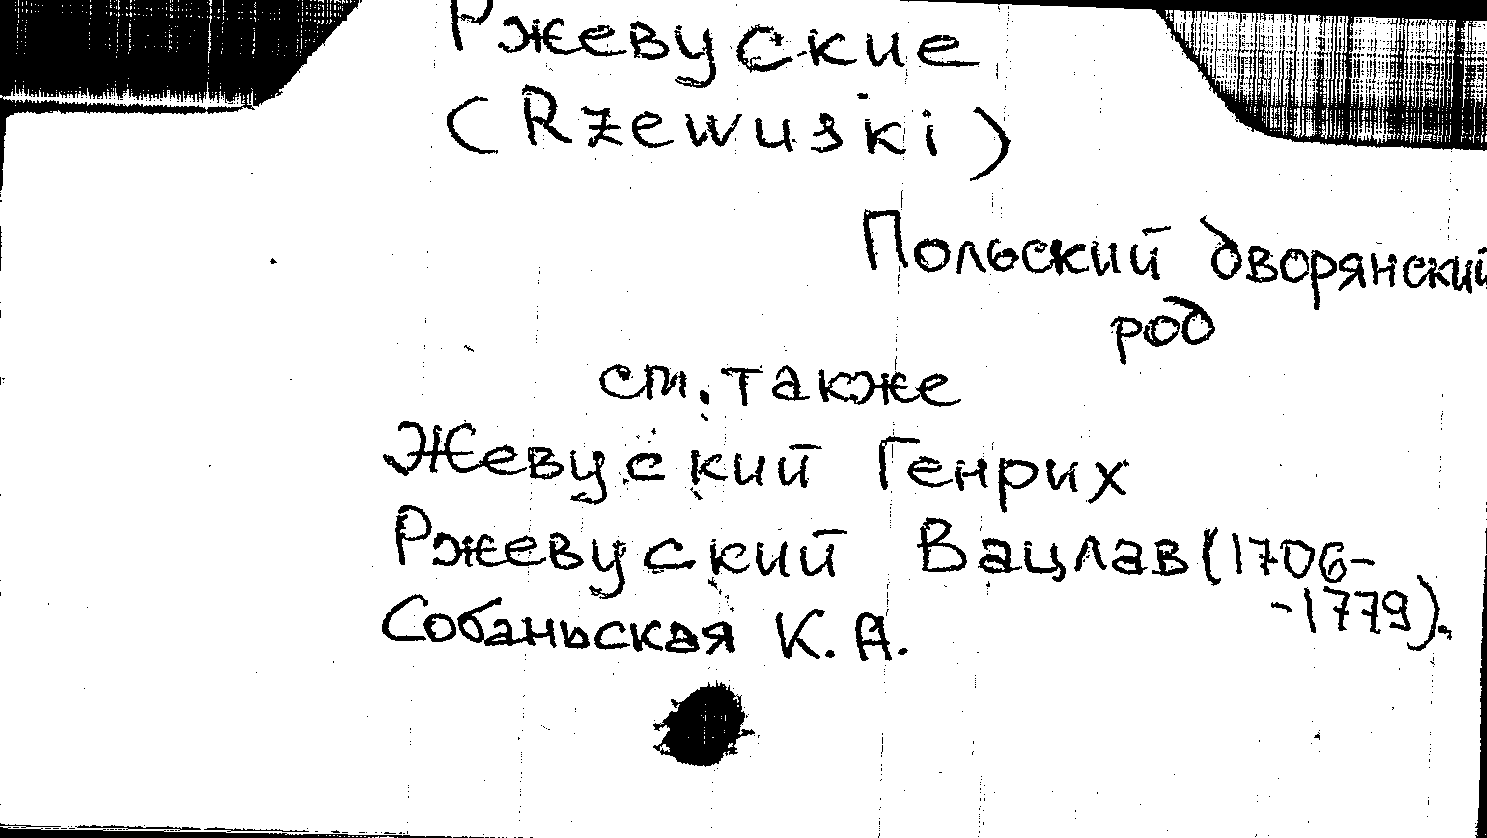 Ржевуские
(Rzewuski)
Польский дворянский
род
см. также
Жевуский Генрих
Ржевуский Вацлав (1706-
-1779).
Собаньская К. А.